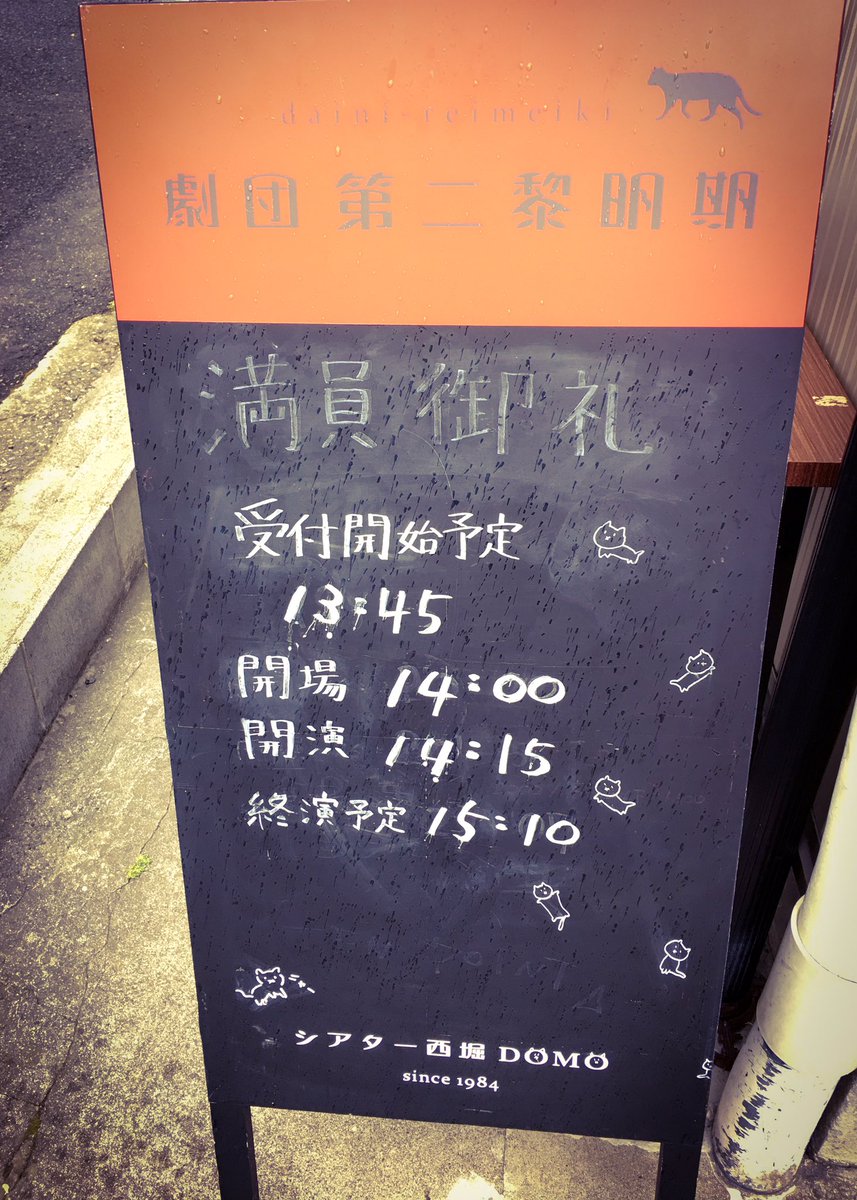 daini-reimeiki
劇団第二黎明期
満員御礼
受付開始予定
13:45
開場 14:00
開演 14:15
終演予定 15:10
ニャー
シアター西堀DOMO
since 1984